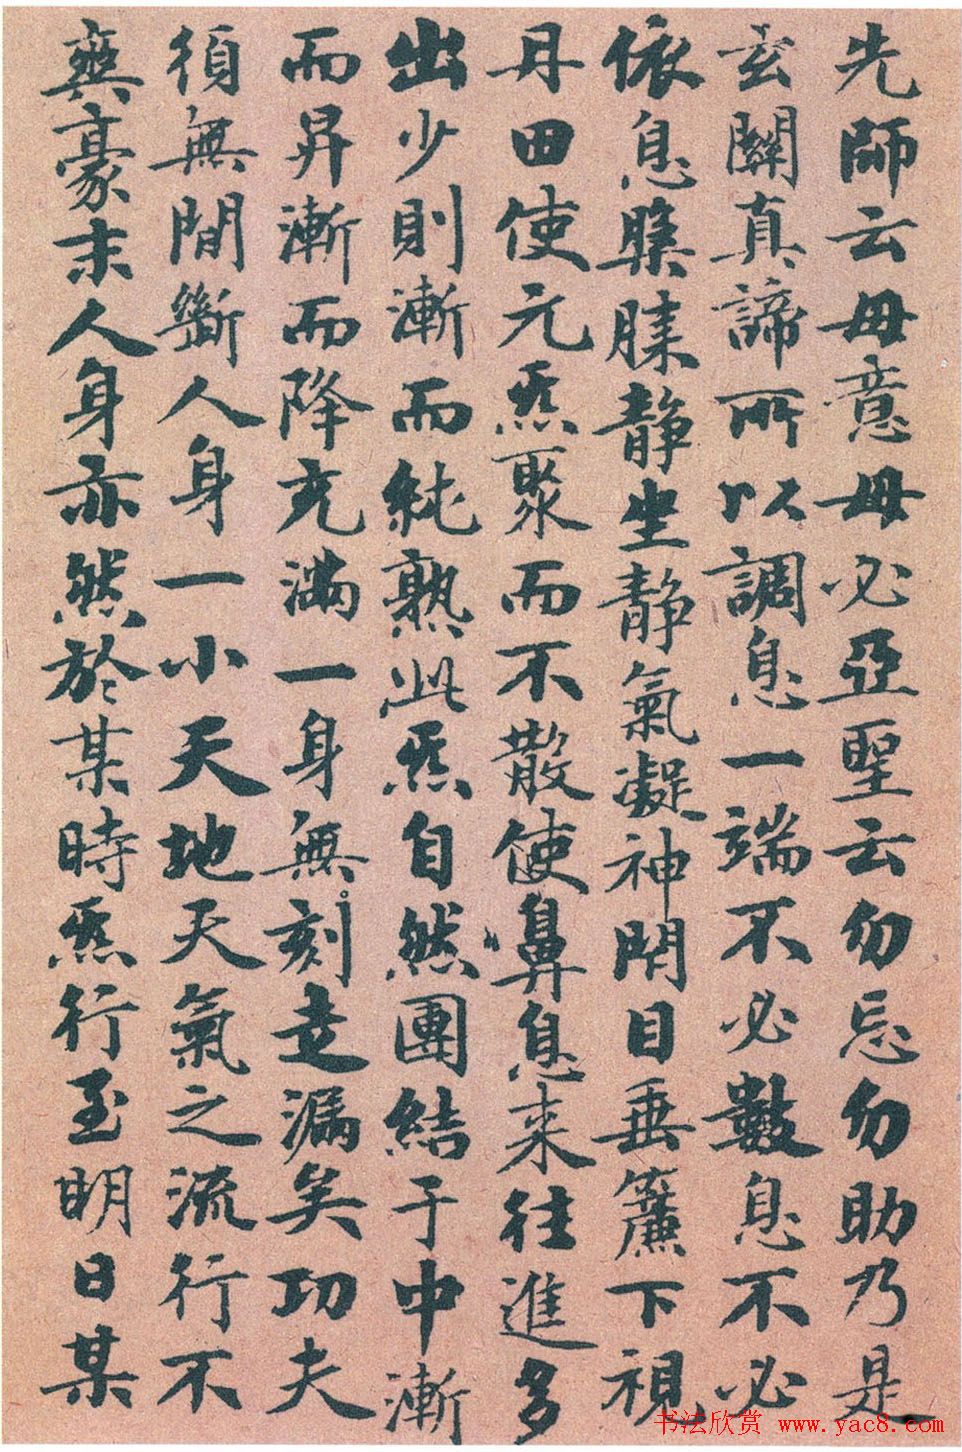 先師云毋意毋必亞聖云勿忘勿助乃是
玄關真諦所以調息一端不必數息不必
依息集膝靜坐靜氣凝神閉目垂簾下視
丹田使元炁聚而不散使鼻息來往進多
出少則漸而純熟此炁自然團結于中漸
而昇漸而降充滿一身無刻走漏矣功夫
須無間斷人身一小天地天氣之流行不
爽豪末人身亦然於某時炁行至明日某
书法欣赏 www.yac8.com